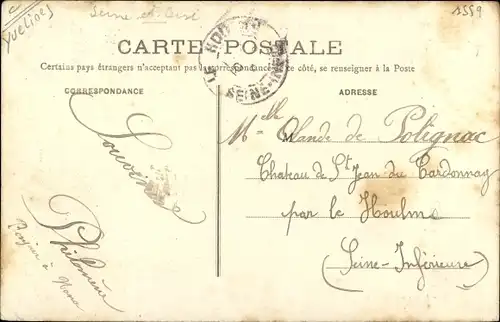 Yvelines
Seine et Oise
1559
CARTE POSTALE
Certains pays étrangers n'acceptant pas la correspondance de ce côté, se renseigner à la Poste
CORRESPONDANCE
ADRESSE
Souvenir
Philomène
Bonjour à
Nona
Melle Olande de Polignac
Chateau de St Jean du Cardonnay
par le Houlme
(Seine-Inférieure)